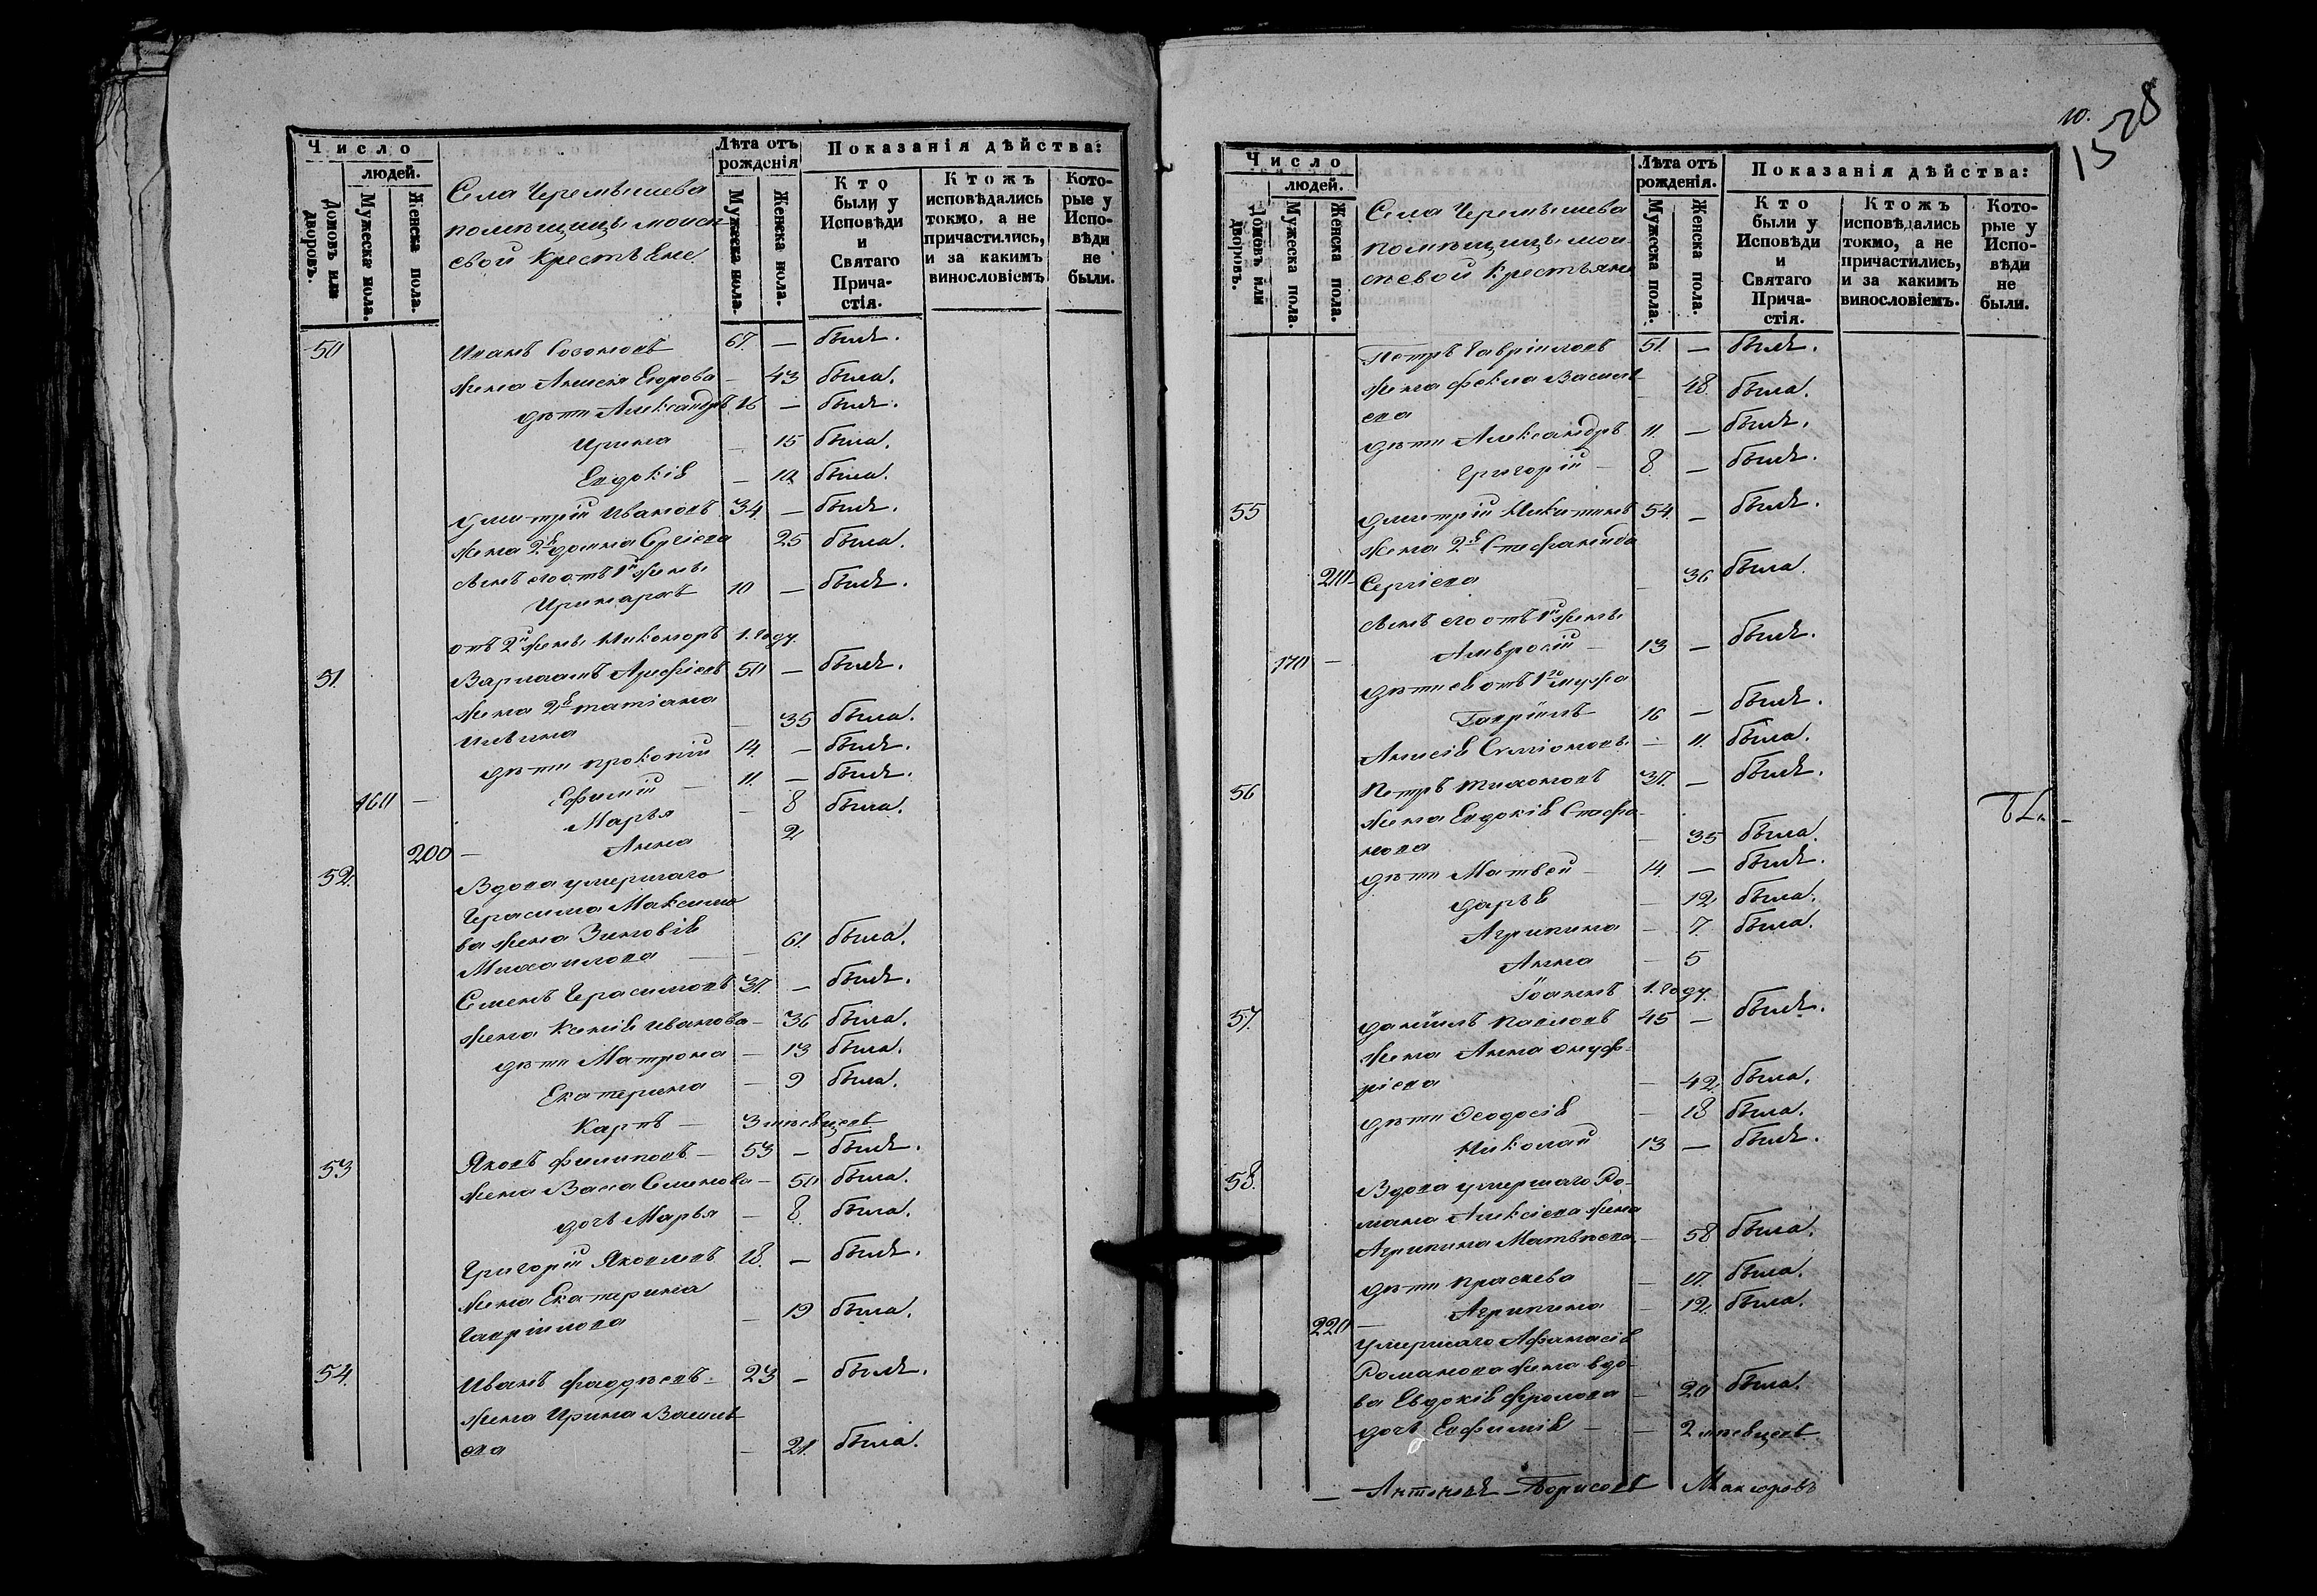 Число
людей.
Домовъ или дворовъ.
Мужеска пола.
Женска пола.
Села Черемышева
помѣщицы моисе
евой крестьяне
Лѣта отъ
рожденія
Мужеска пола.
Женска пола.
Показанія дѣйства:
Кто
были у
Исповѣди
и
Святаго
Прича-
стія.
Ктожъ
исповѣдались
токмо, а не
причастились,
и за какимъ
винословіемъ
Кото-
рые у
Испо-
вѣди
не
были.
50 Иванъ 67. — былъ.
жена Анисія Егорова — 43 была.
дѣти Александръ 16 — былъ.
Ирина — 15 была.
Евдокія — 12 была.
Дмитрій Ивановъ 34 — былъ.
жена 2я Домна Сергіева 25 была.
Сынъ его отъ 1й жены
Иринархъ 10 — былъ.
отъ 2й жены Никоноръ 1. году.
51. Варлаамъ Арефіевъ 50 — былъ.
жена 2я татіана
Ильина — 35 была.
дѣти прокопій 14. — былъ.
Ефимій — 11. — былъ.
160 — Марья — 8 была.
200 — Анна 2
52. Вдова умершаго
Герасима Максимо
ва жена Зиновія
Михаилова — 61. была.
Семенъ Герасимовъ 37. — былъ.
жена Ксенія иванова — 36 была.
дѣти Матрона — 13 была.
Екатерина — 9 была.
Карпъ — 3 мѣсяцевъ
53 Яковъ филиповъ — 53 — былъ.
жена Васса Семенова — 50 была.
дочь Марья — 8 была.
Григорій Яковлевъ 18. — былъ.
жена Екатерина
Гавріилова — 19 была.
54. Иванъ фаддѣевъ — 23 — былъ.
жена Ирина Василь
ева — 21. была.
10.
1528
Число
людей.
Домовъ или дворовъ.
Мужеска пола.
Женска пола.
Села Черемышева
помѣщицы мои-
сеевой крестьяне
Лѣта отъ
рожденія.
Мужеска пола.
Женска пола.
Показанія дѣйства:
Кто
были у
Исповѣди
и
Святаго
Прича-
стія.
Ктожъ
исповѣдались
токмо, а не
причастились,
и за какимъ
винословіемъ.
Кото-
рые у
Испо-
вѣди
не
были.
Петръ Гавріиловъ 51. — былъ.
жена фекла Василь
ева — 48. была.
дѣти Александръ 11. — былъ.
Григорій — 8 — былъ.
55 Дмитрій Никитинъ 54. — былъ.
жена 2я Стефанида
210 Сергіева — 36 была.
Сынъ его отъ 1й жены
170 — Амвросій — 13 — былъ.
дѣти ея отъ 1го мужа
Гавріилъ — 16 — былъ.
Анисія Симіонова — 11. была.
56 Петръ тихоновъ 37. — былъ.
жена Евдокія Стефа-
нова — 35 была.
дѣти Матвей — 14. — былъ.
Дарья — 12 была.
Агрипина — 7. была.
Анна — 5
Іоаннъ 1. году.
57. Даніилъ Павловъ 45 — былъ.
жена Анна Онуф-
ріева — 42 была.
дѣти Феодосія — 18 была.
Николай 13 — былъ.
58. Вдова умершаго Ро-
мана Алексіева жена
Агрипина Матвѣева — 58. была.
дѣти праскева — 17. была.
220 — Агрипина — 12. была.
умершаго Афанасія
Романова жена вдо-
ва Евдокія фролова — 20 была.
дочь Евфимія — — 2 мѣсяцевъ
— Антоновъ — Борисовъ